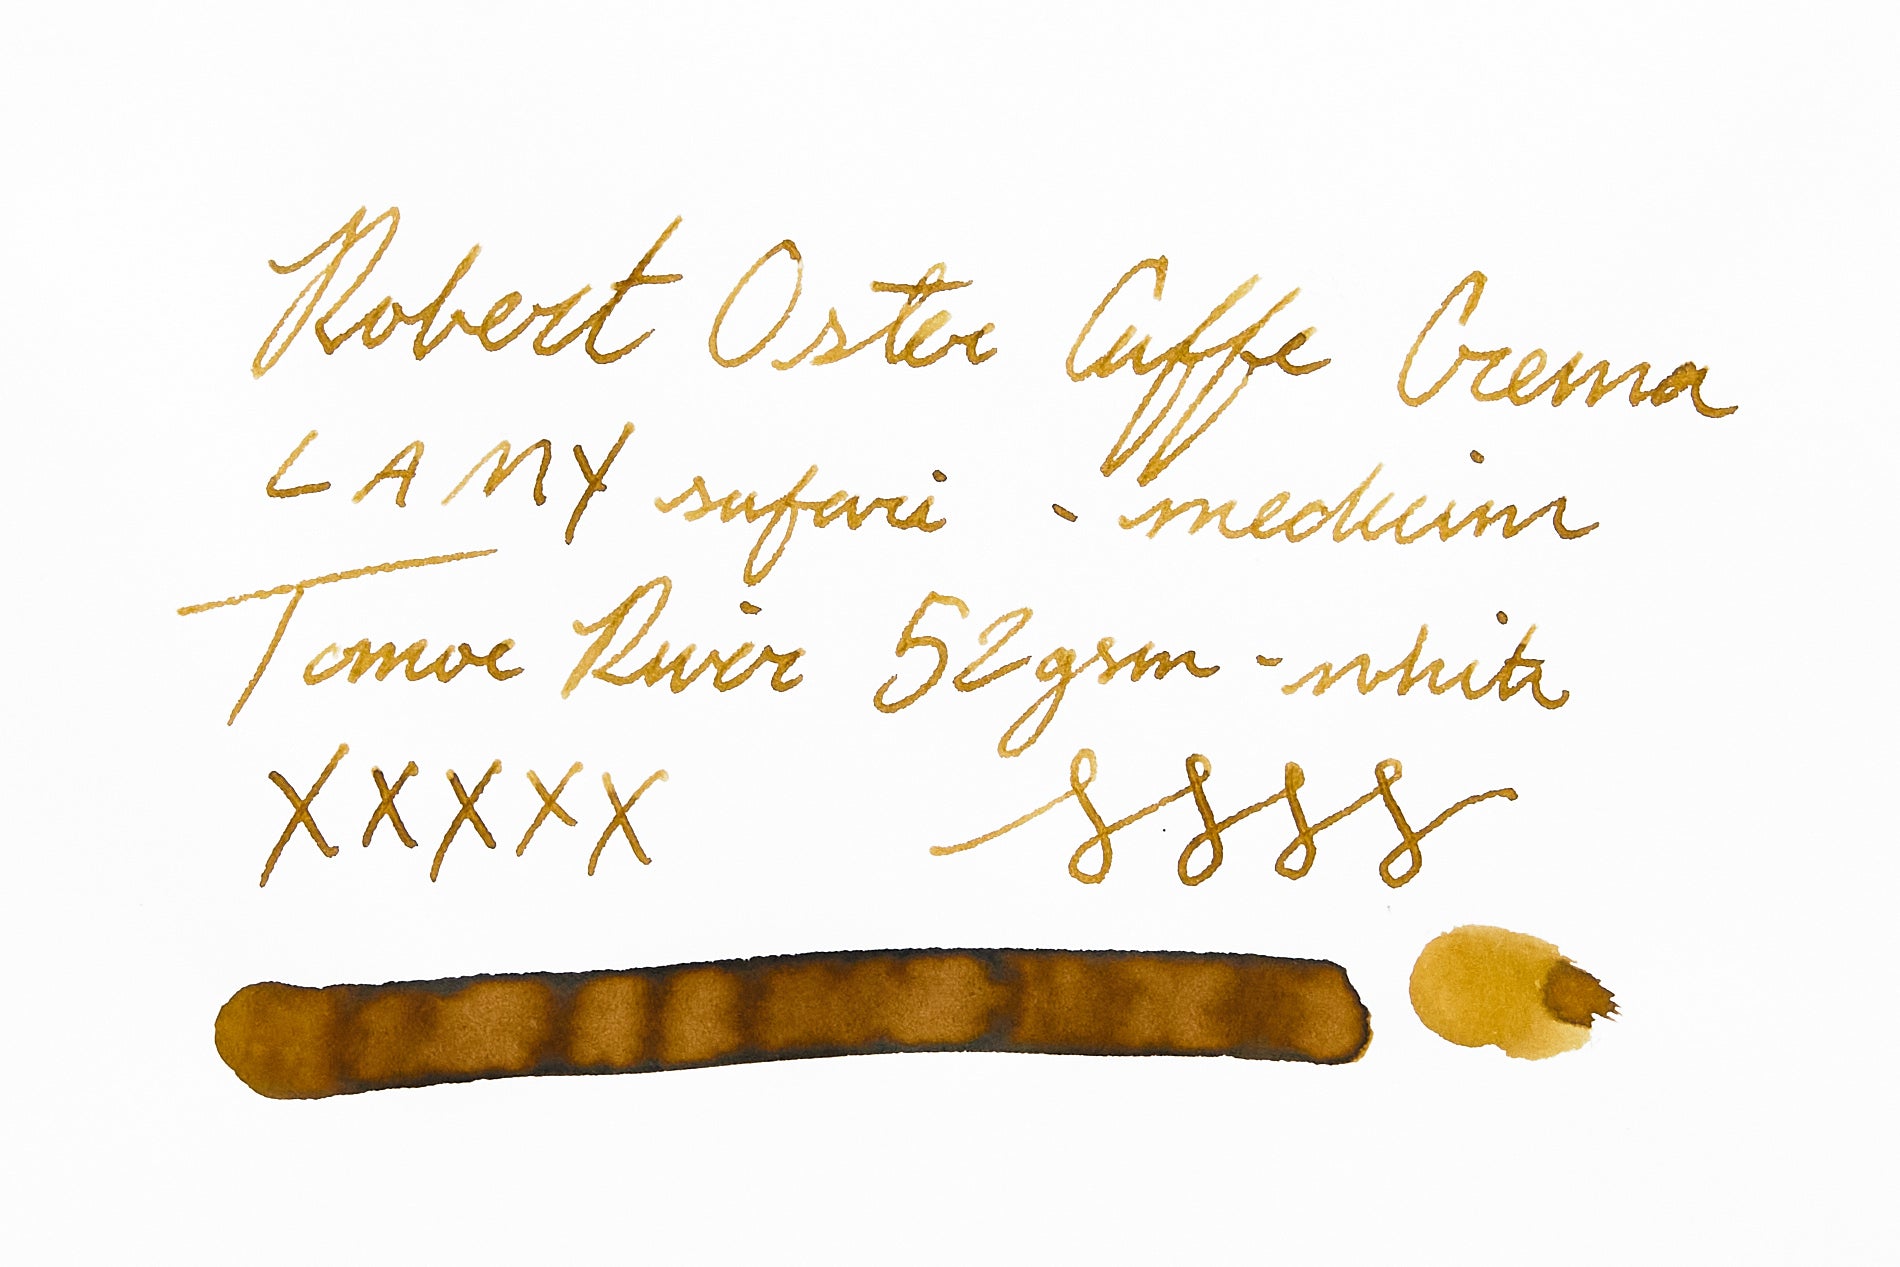 Robert Oster Caffe Crema
LAMY safari - medium
Tomoe River 52gsm - white
XXXXX